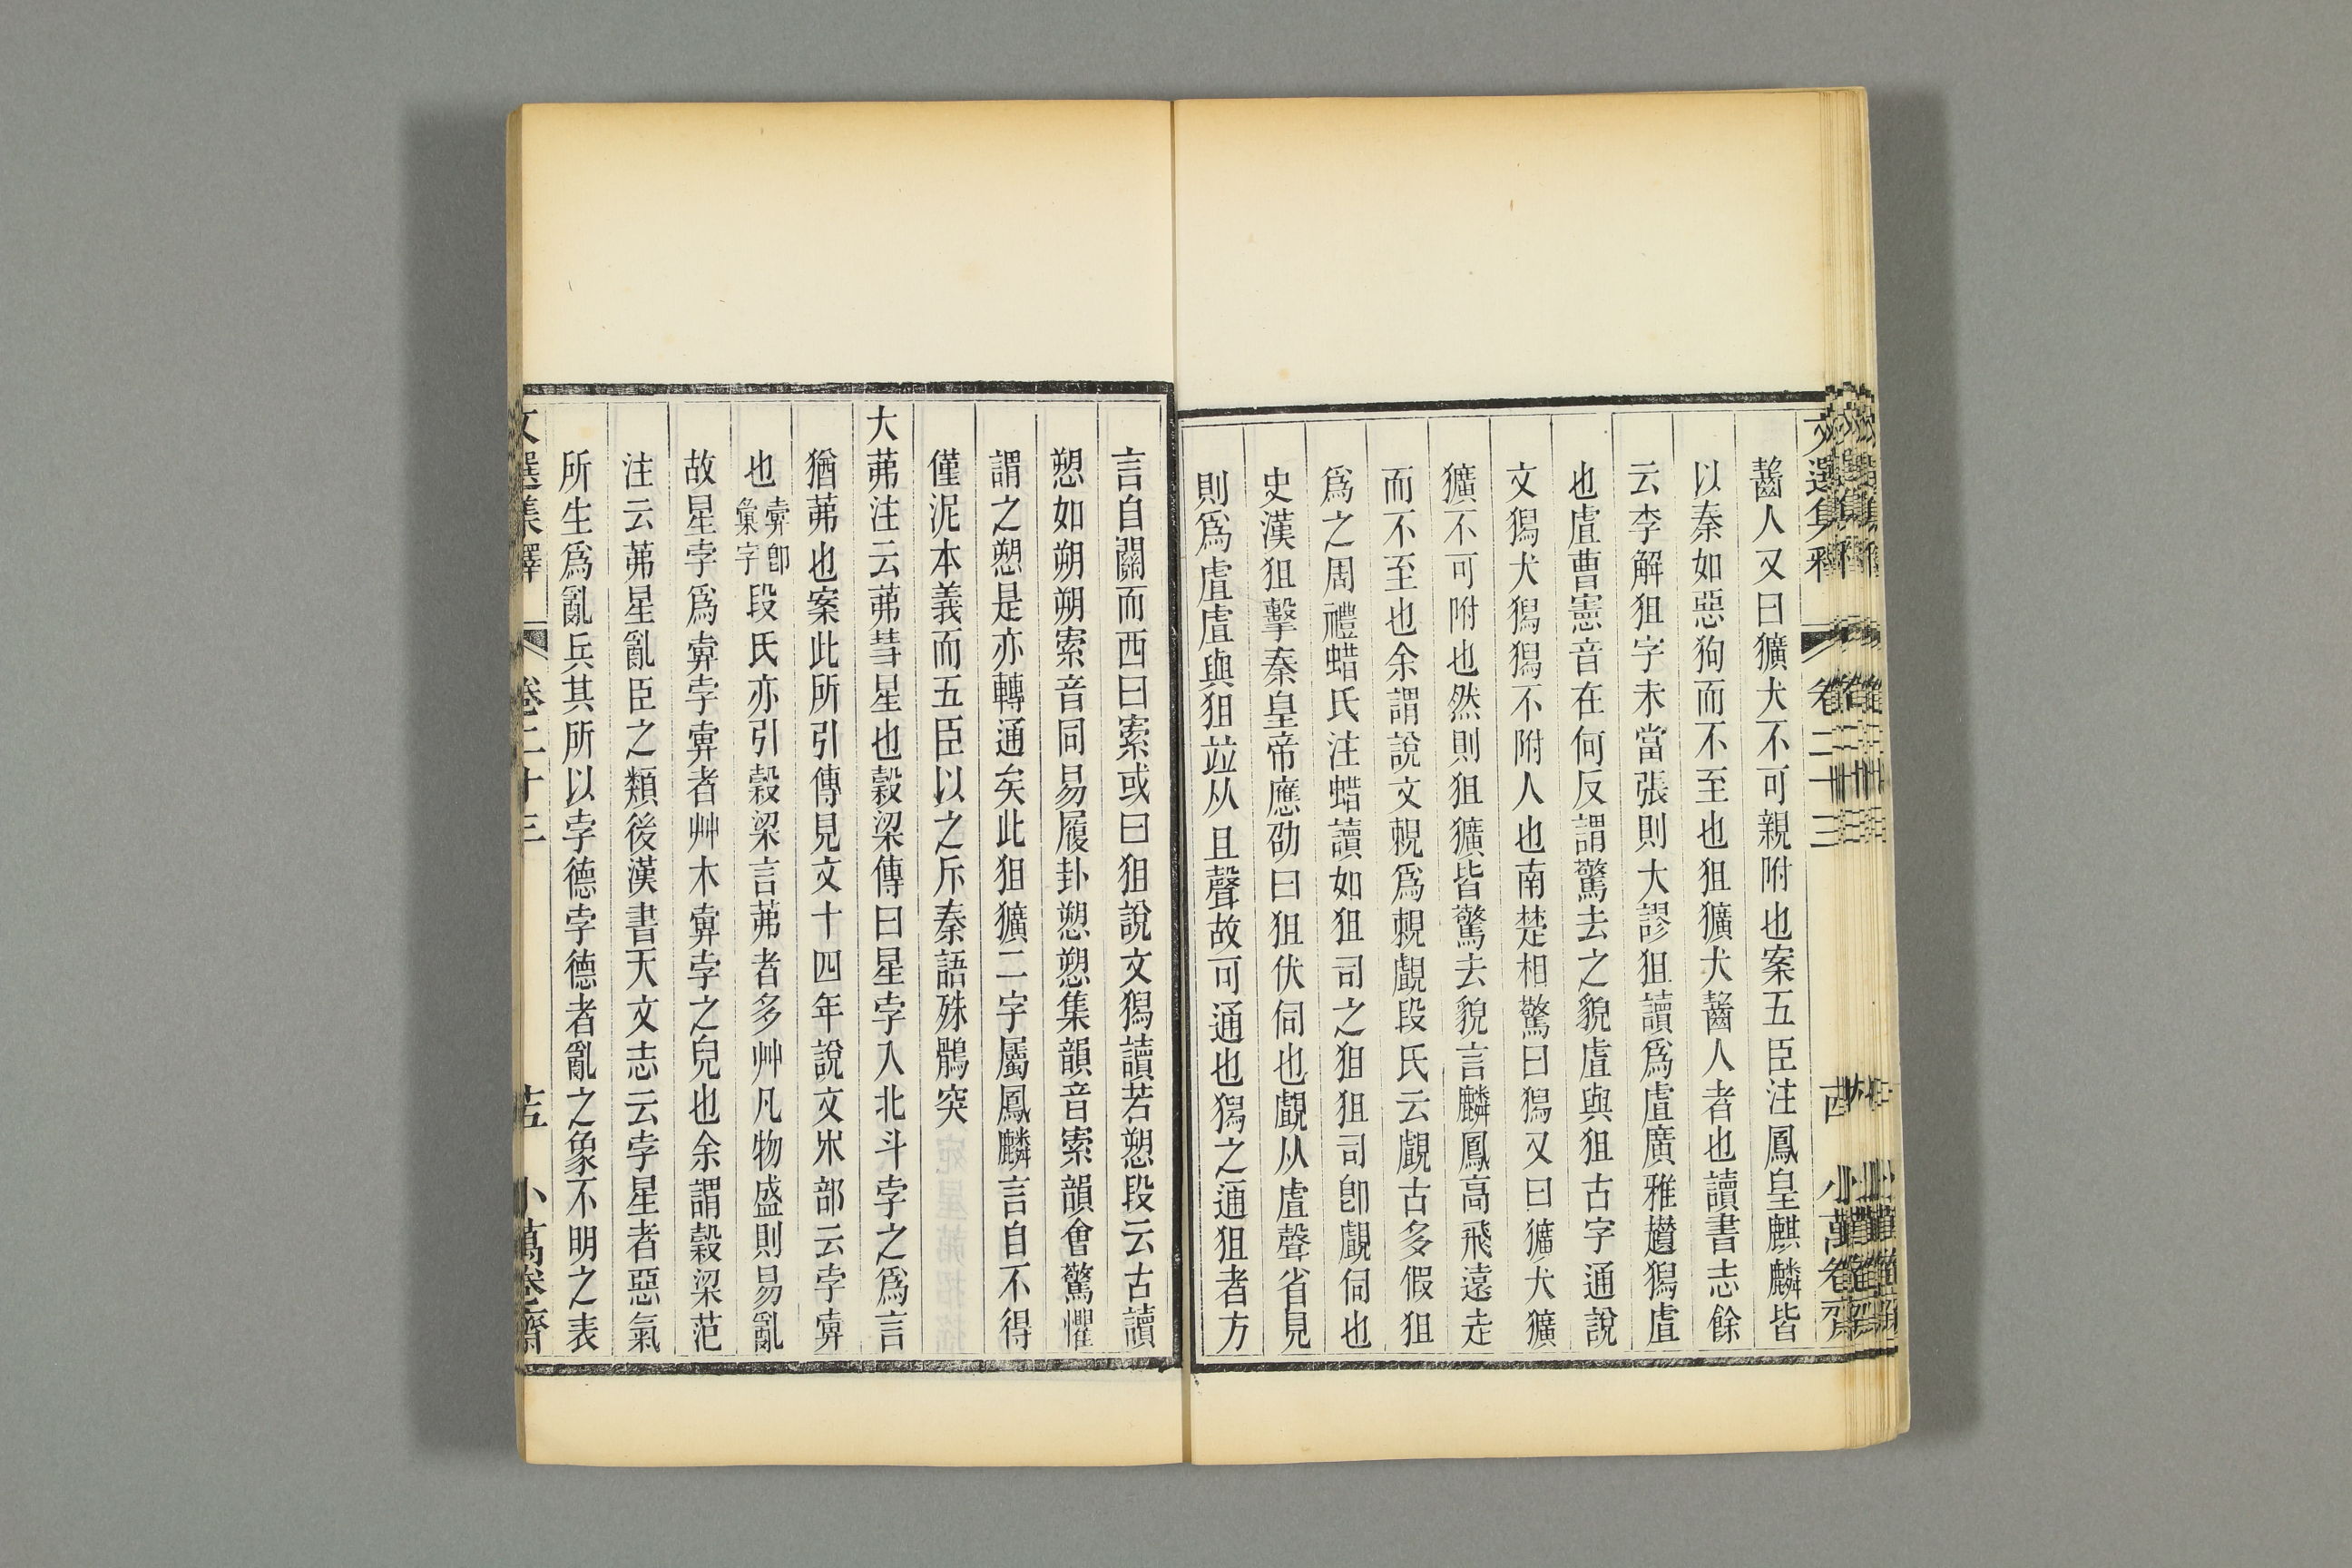 文選集釋 卷二十三 十四 小萬卷齋
齰人又曰獷犬不可親附也案五臣注鳳皇麒麟皆
以秦如惡狗而不至也狙獷犬齰人者也讀書志餘
云李解狙字未當張則大謬狙讀爲虘廣雅䟃猲虘
也虘曹憲音在何反謂驚去之貌虘與狙古字通說
文猲犬猲猲不附人也南楚相驚曰猲又曰獷犬獷
獷不可附也然則狙獷皆驚去貌言麟鳳高飛遠走
而不至也余謂說文䙾爲䙾覰段氏云覰古多假狙
爲之周禮蜡氏注蜡讀如狙司之狙狙司卽覰伺也
史漢狙擊秦皇帝應劭曰狙伏伺也覰从虘聲省見
則爲虘虘與狙竝从且聲故可通也猲之通狙者方
言自關而西曰索或曰狙說文猲讀若愬段云古讀
愬如朔朔索音同易履卦愬愬集韻音索韻會驚懼
謂之愬是亦轉通矣此狙獷二字屬鳳麟言自不得
僅泥本義而五臣以之斥秦語殊鶻突
大茀注云茀彗星也穀梁傳曰星孛入北斗孛之爲言
猶茀也案此所引傳見文十四年說文𣎵部云孛𡴀
也𡴀卽彙字段氏亦引穀梁言茀者多艸凡物盛則易亂
故星孛爲𡴀孛𡴀者艸木𡴀孛之皃也余謂穀梁范
注云茀星亂臣之類後漢書天文志云孛星者惡氣
所生爲亂兵其所以孛德孛德者亂之象不明之表
文選集釋 卷二十三 十五 小萬卷齋